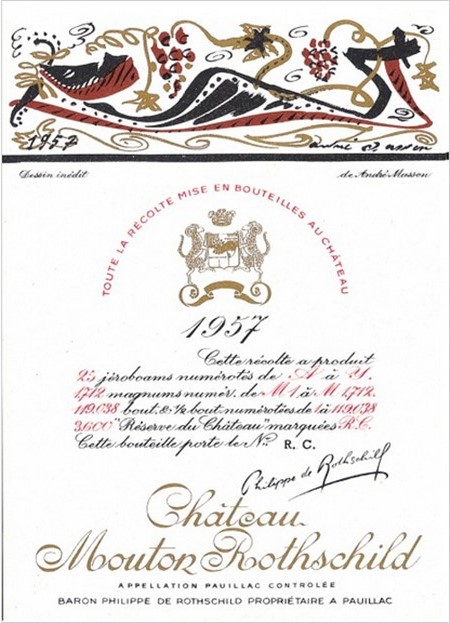 1957 andré masson
Dessin inédit de André Masson
TOUTE LA RÉCOLTE MISE EN BOUTEILLES AU CHÂTEAU
1957
Cette récolte a produit
25 jéroboams numérotés de A à Y.
1.712 magnums numér. de M 1. à M 1.712.
119.038 bout. & ½ bout. numérotées de 1 à 119.038
3.600 "Réserve du Château" marquées R.C.
Cette bouteille porte le No. R. C.
Philippe de Rothschild
Château
Mouton Rothschild
APPELLATION PAUILLAC CONTROLÉE
BARON PHILIPPE DE ROTHSCHILD PROPRIÉTAIRE A PAUILLAC